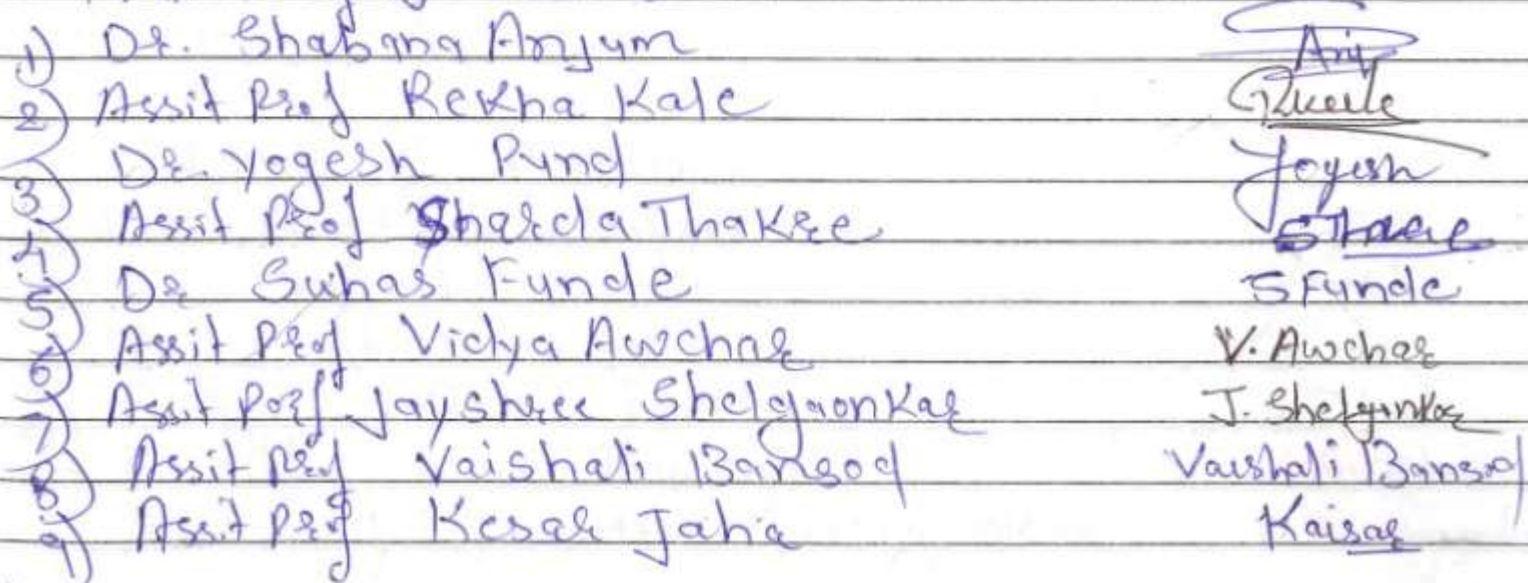 1) Dr. Shabana Anjum Anj
2) Assit Prof Rekha Kale RKale
3) Dr. Yogesh Pund Yogesh
4) Assit Prof Sharda Thakre SThakre
5) Dr Suhas Funde S Funde
6) Assit Prof Vidya Awchar V. Awchar
7) Assit Porf Jayshree Shelgaonkar J. Shelgonkar
8) Assit Prof Vaishali Bansod Vaishali Bansod
9) Assit Prof Kesar Jaha Kaisar